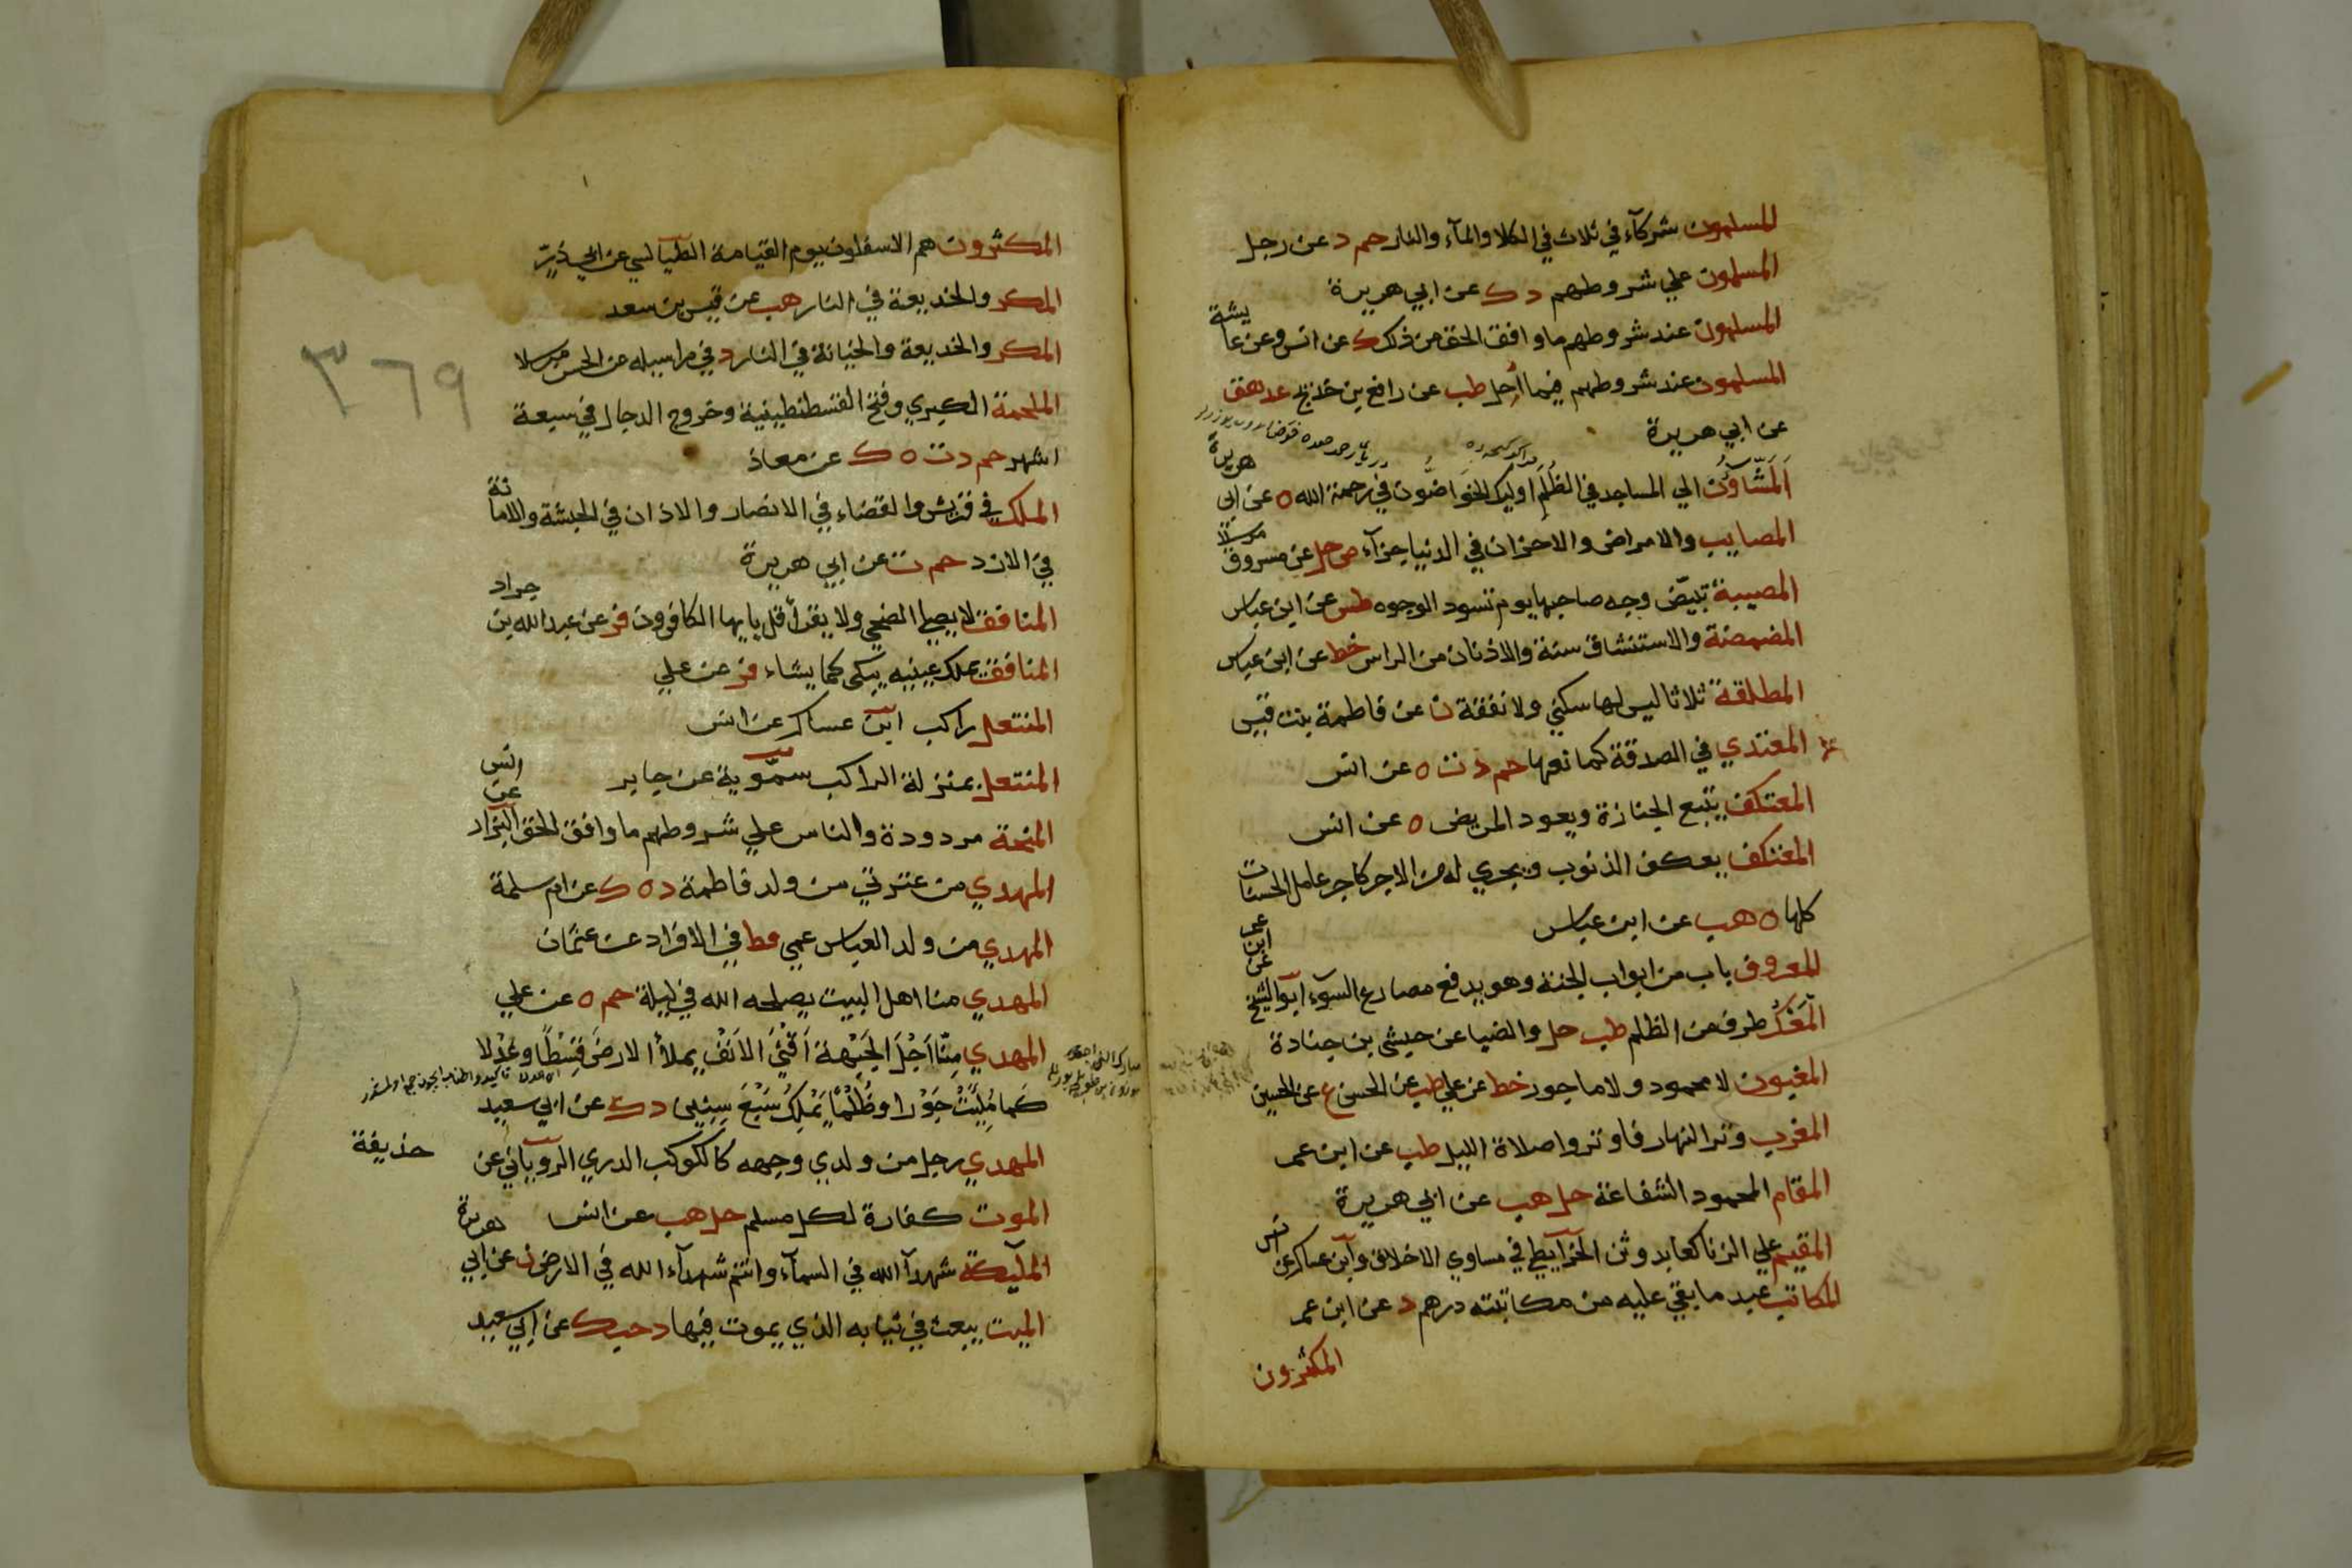 المسلمون شركآء في ثلاث في الكلا والمآء والنار حم د عن رجل
المسلمون علي شروطهم د ك عن ابي هريرة
المسلمون عند شروطهم ما وافق الحق من ذلك ك عن انس وعن عايشة
المسلمون عند شروطهم فيما أحل طب عن رافع بن خديج عد هق
عن ابي هريرة
المَشَّاؤُن الي المساجد في الظُلَمِ اوليك الخَوَاضُون في رحمة الله ه عن ابي هريرة
المصايب والامراض والاحزان في الدنيا جزآء ص حل عن مسروق مرسلا
المصيبة تبيّض وجه صاحبها يوم تسود الوجوه طس عن ابن عباس
المضمضة والاستنشاق سنة والاذنان من الراس خط عن ابن عباس
المطلقة ثلاثا ليس لها سكني ولا نفقة ن عن فاطمة بنت قيس
المعتدي في الصدقة كمانعها حم د ت ه عن انس
المعتكف يتبع الجنازة ويعود المريض ه عن انس
المعتكف يعكف الذنوب ويجري له من الاجر كاجر عامل الحسنات
كلها ه هب عن ابن عباس
المعروف باب من ابواب الجنة وهو يدفع مصارع السوء ابو الشيخ عن ابن عمر
المَعْكُ طرف من الظلم طب حل والضيا عن حبشي بن جنادة
المغبون لا محمود ولا ماجور خط عن علي طب عن الحسن ع عن الحسين
المغرب وتر النهار فاوتروا صلاة الليل طب عن ابن عمر
المقام المحمود الشفاعة حل هب عن ابي هريرة
المقيم علي الزنا كعابد وثن الخرآيطي في مساوي الاخلاق وآبن عساكر عن انس
المكاتب عبد ما بقي عليه من مكاتبته درهم د عن ابن عمر
المكثرون
المكثرون هم الاسفلون يوم القيامة الطيالسي عن ابي ذرّ
المكر والخديعة في النار هب عن قيس بن سعد
المكر والخديعة والخيانة في النار د في مراسيله عن الحسن مرسلا
٣٦٩
الملحمة الكبري وفتح القسطنطينية وخروج الدجال في سبعة
اشهر حم د ت ه ك عن معاذ
الملك في قريش والقضاء في الانصار والاذان في الحبشة والامانة
في الازد حم ت عن ابي هريرة
المنافق لا يصلي الضحي ولا يقرأ قل يايها الكافرون فر عن عبد الله بن جراد
المنافق يملك عينيه يبكي كما يشاء فر عن علي
المنتعل راكب ابن عساكر عن انس
المنتعل بمنزلة الراكب سمّوية عن جابر
المنحة مردودة والناس علي شروطهم ما وافق الحق البزار عن انس
المهدي من عترتي من ولد فاطمة د ه ك عن ام سلمة
المهدي من ولد العباس عمي قط في الافراد عن عثمان
المهدي منا اهل البيت يصلحه الله في ليلة حم ه عن علي
المهدي مِنَّا اَجْلَ الجَبْهَة اَقْنَي الاَنْف يملأ الارضَ قِسْطًا وعَدْلا
كَما مُلِيَتْ جَوْرا وظُلْمًا يَمْلِكُ سَبْعَ سِنِين د ك عن ابي سعيد
المهدي رجل من ولدي وجهه كالكوكب الدري الروياني عن حذيفة
الموت كفارة لكل مسلم حل هب عن انس
المليكة شهدآ الله في السمآء وانتم شهدآء الله في الارض ن عن ابي هريرة
الميت يبعث في ثيابه الذي يموت فيها د حب ك عن ابي سعيد